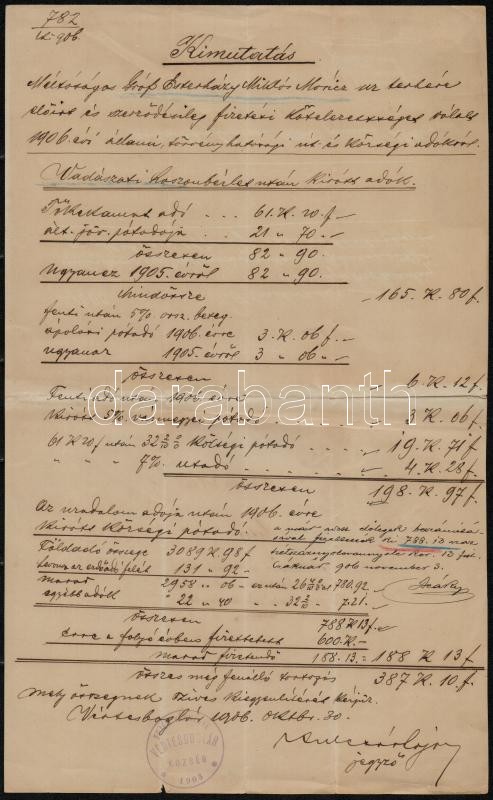 782
ik. 906.
Kimutatás
Méltóságos Gróf Esterházy Miklós Móricz ur terhére
előirt és szerződésileg fizetési kötelezettséget vállalt
1906. évi állami, törvényhatósági út és községi adókról.
Vadászati haszonbérlet után kirótt adók.
Tőkekamat adó . . . 61. K. 20 f.
ált. jöv. pótadója . . 21 " 70.
összesen 82 " 90.
Ugyanez 1905. évről 82 " 90.
Mindössze 165. K. 80 f.
fenti után 5% orsz. beteg
ápolási pótadó 1906. évre 3. K. 06 f.
ugyanaz 1905. évről 3 " 06 "
összesen 6. K. 12 f.
Fenti adó után 1906. évre
kirótt 5% vármegyei pótadó . . 3 K. 06 f
61 K 20 f után 32 % községi pótadó . 19. K. 71 f
" " " 7% utadó . . . . 4. K. 28 f.
összesen 198. K. 97 f.
Az uradalom adója után 1906. évre
kirótt községi pótadó.
788. 13
906 november 3.
Földadó összege 3089 K. 98 f
131 " 92
marad 2958 " 06 780.92
egyébb adók " 22 " 40 7.21
összesen 788 K 13 f.
Erre a folyó évben fizettetett 600. K.
marad fizetendő 188. 13. 188 K 13 f
összes még fenálló tartozás 387 K. 10 f.
mely összegnek szives kiegyenlitését kérjük.
Vértesboglár, 1906. oktbr. 30.
VÉRTESBOGLÁR
KÖZSÉG
jegyző
darabanth